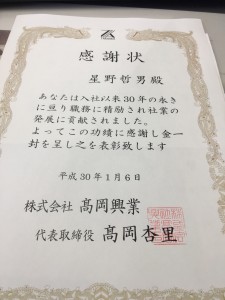 感謝状
星野哲男殿
あなたは入社以来30年の永き
に亘り職務に精励され社業の
発展に貢献されました。
よってこの功績に感謝し金一
封を呈し之を表彰致します
平成30年1月6日
株式会社 髙岡興業
代表取締役 髙岡杏里